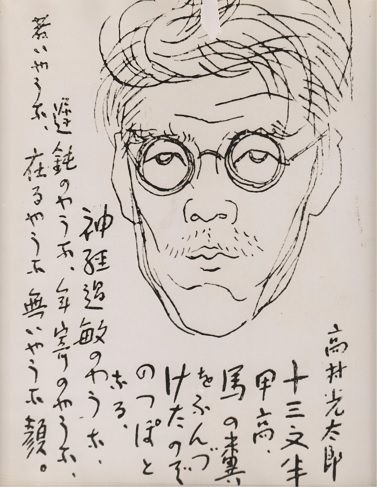 高村光太郎
十三文半
甲高、
馬の糞
をふんづ
けたので
のつぽと
なる、
神経過敏のやうな、
遅鈍のやうな、年寄のやうな、
若いやうな、在るやうな無いやうな顔。